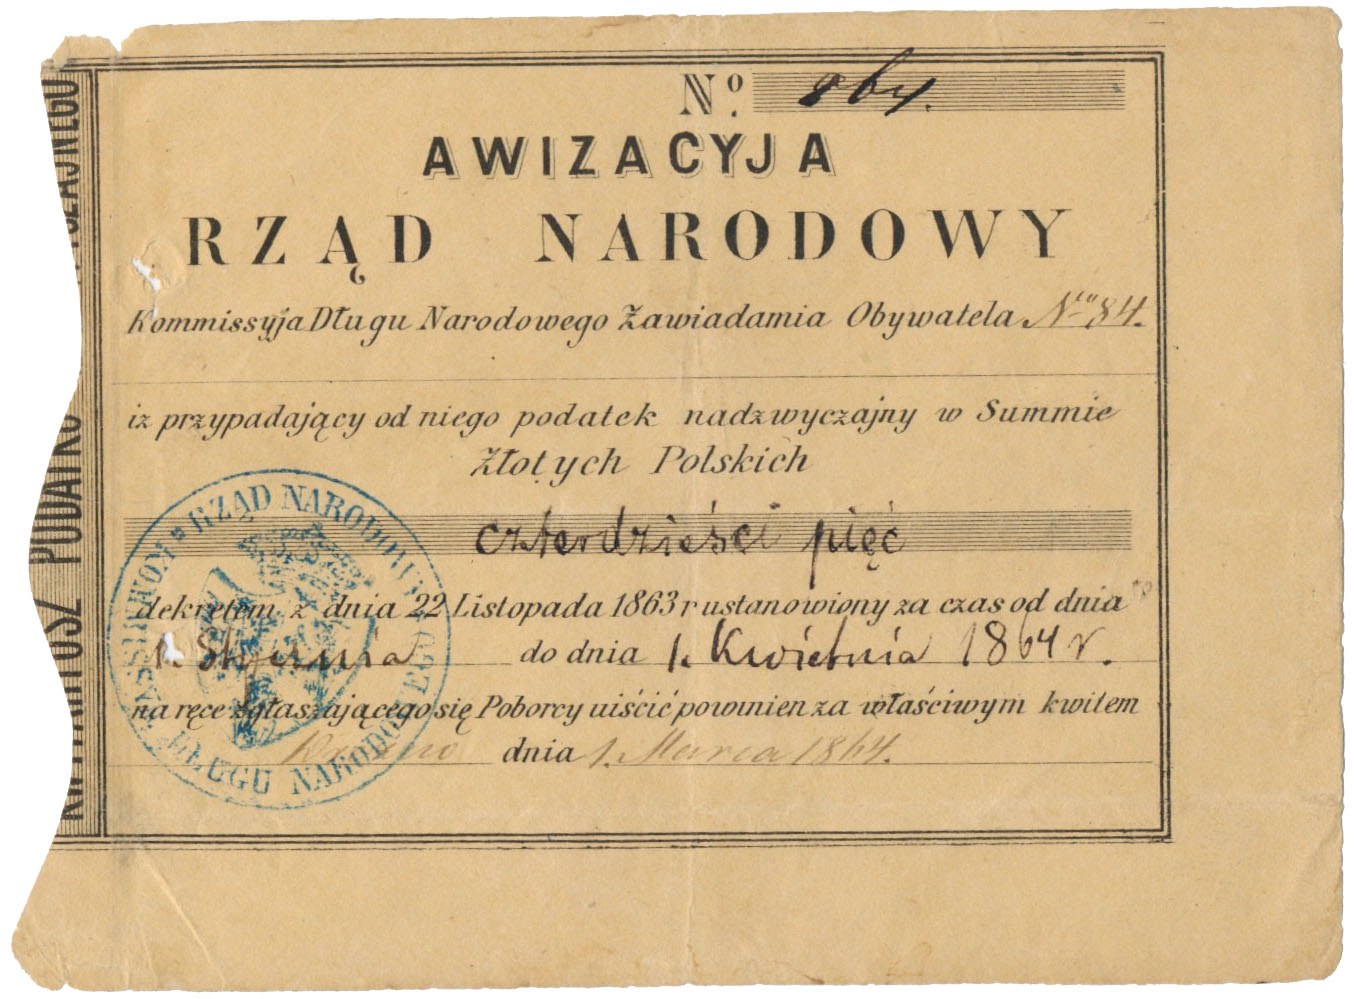 No. 864.
AWIZACYJA
RZĄD NARODOWY
Kommissyja Długu Narodowego Zawiadamia Obywatela No 84.
iż przypadający od niego podatek nadzwyczajny w Summie
Złotych Polskich
czterdzieści pięć
dekretem z dnia 22 Listopada 1863 r ustanowiony za czas od dnia
1. Stycznia do dnia 1. Kwietnia 1864 r.
na ręce zgłaszającego się Poborcy uiścić powinien za właściwym kwitem
dnia 1. Marca 1864.
RZĄD NARODOWY
KOMMISSIA DŁUGU NARODOWEGO
KWITARIUSZ PODATKU